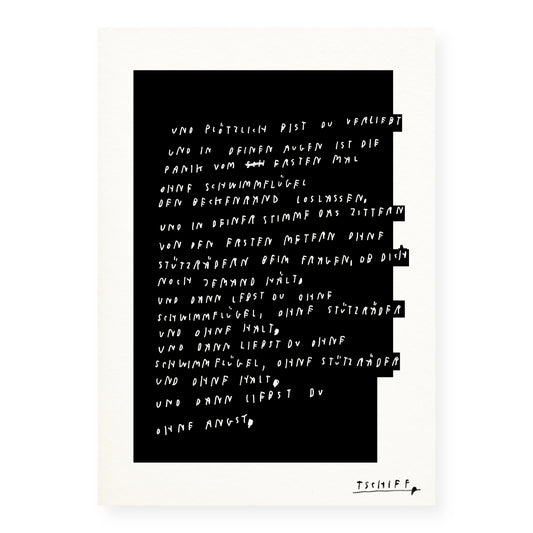 UND PLÖTZLICH BIST DU VERLIEBT
UND IN DEINEN AUGEN IST DIE
PANIK VOM ERSTEN MAL
OHNE SCHWIMMFLÜGEL
DEN BECKENRAND LOSLASSEN,
UND IN DEINER STIMME DAS ZITTERN
VON DEN ERSTEN METERN OHNE
STÜTZRÄDERN BEIM FRAGEN, OB DICH
NOCH JEMAND HÄLT.
UND DANN LEBST DU OHNE
SCHWIMMFLÜGEL, OHNE STÜTZRÄDER
UND OHNE HALT.
UND DANN LIEBST DU OHNE
SCHWIMMFLÜGEL, OHNE STÜTZRÄDER
UND OHNE HALT.
UND DANN LIEBST DU
OHNE ANGST.
TSCHIFF.